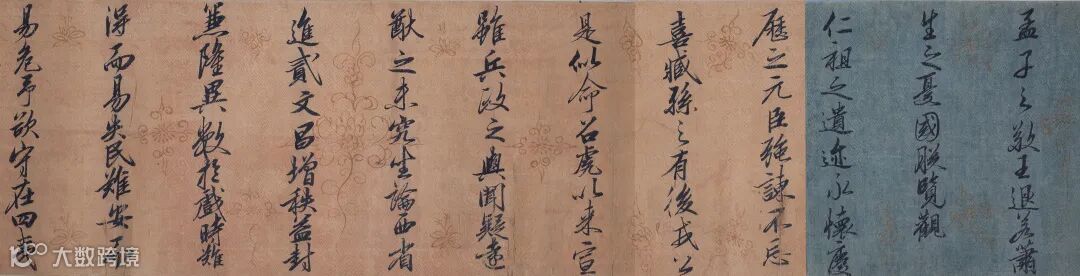 孟子之敬王退若蕭
生之憂國朕覽觀
仁祖之遺迹永懷慶
歷之元臣強諫不忘
喜臧孫之有後戎公
是似命召虎以來宣
雖兵政之與聞疑遠
猷之未究坐論西省
進貳文昌增秩益封
兼隆異數於戲時難
得而易失民難安而
易危予欲守在四夷
大数跨境